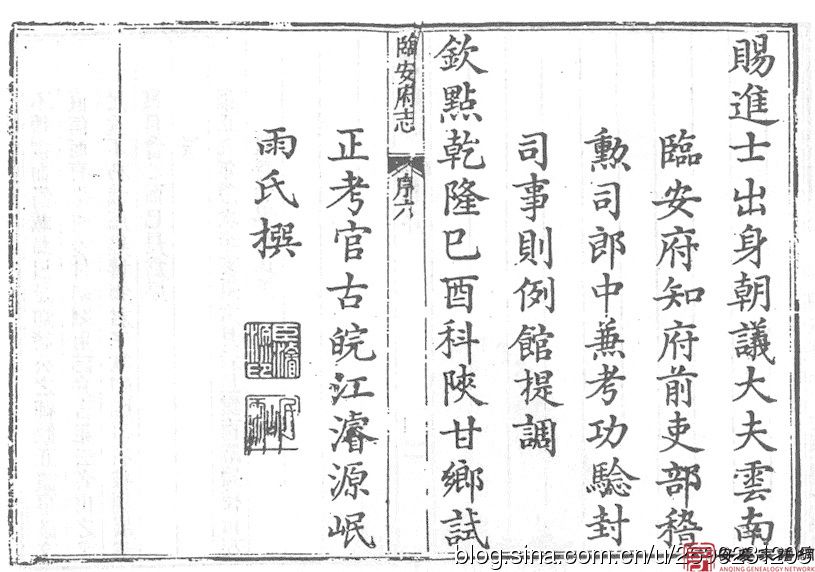 賜進士出身朝議大夫雲南
臨安府知府前吏部稽
勲司郎中兼考功驗封
司事則例館提調
欽點乾隆巳酉科陝甘鄉試
臨安府志
序六
正考官古皖江濬源岷
雨氏撰
臣濬源印
岷雨
blog.sina.com.cn/u/
ANQING GENEALOGY NETWORK